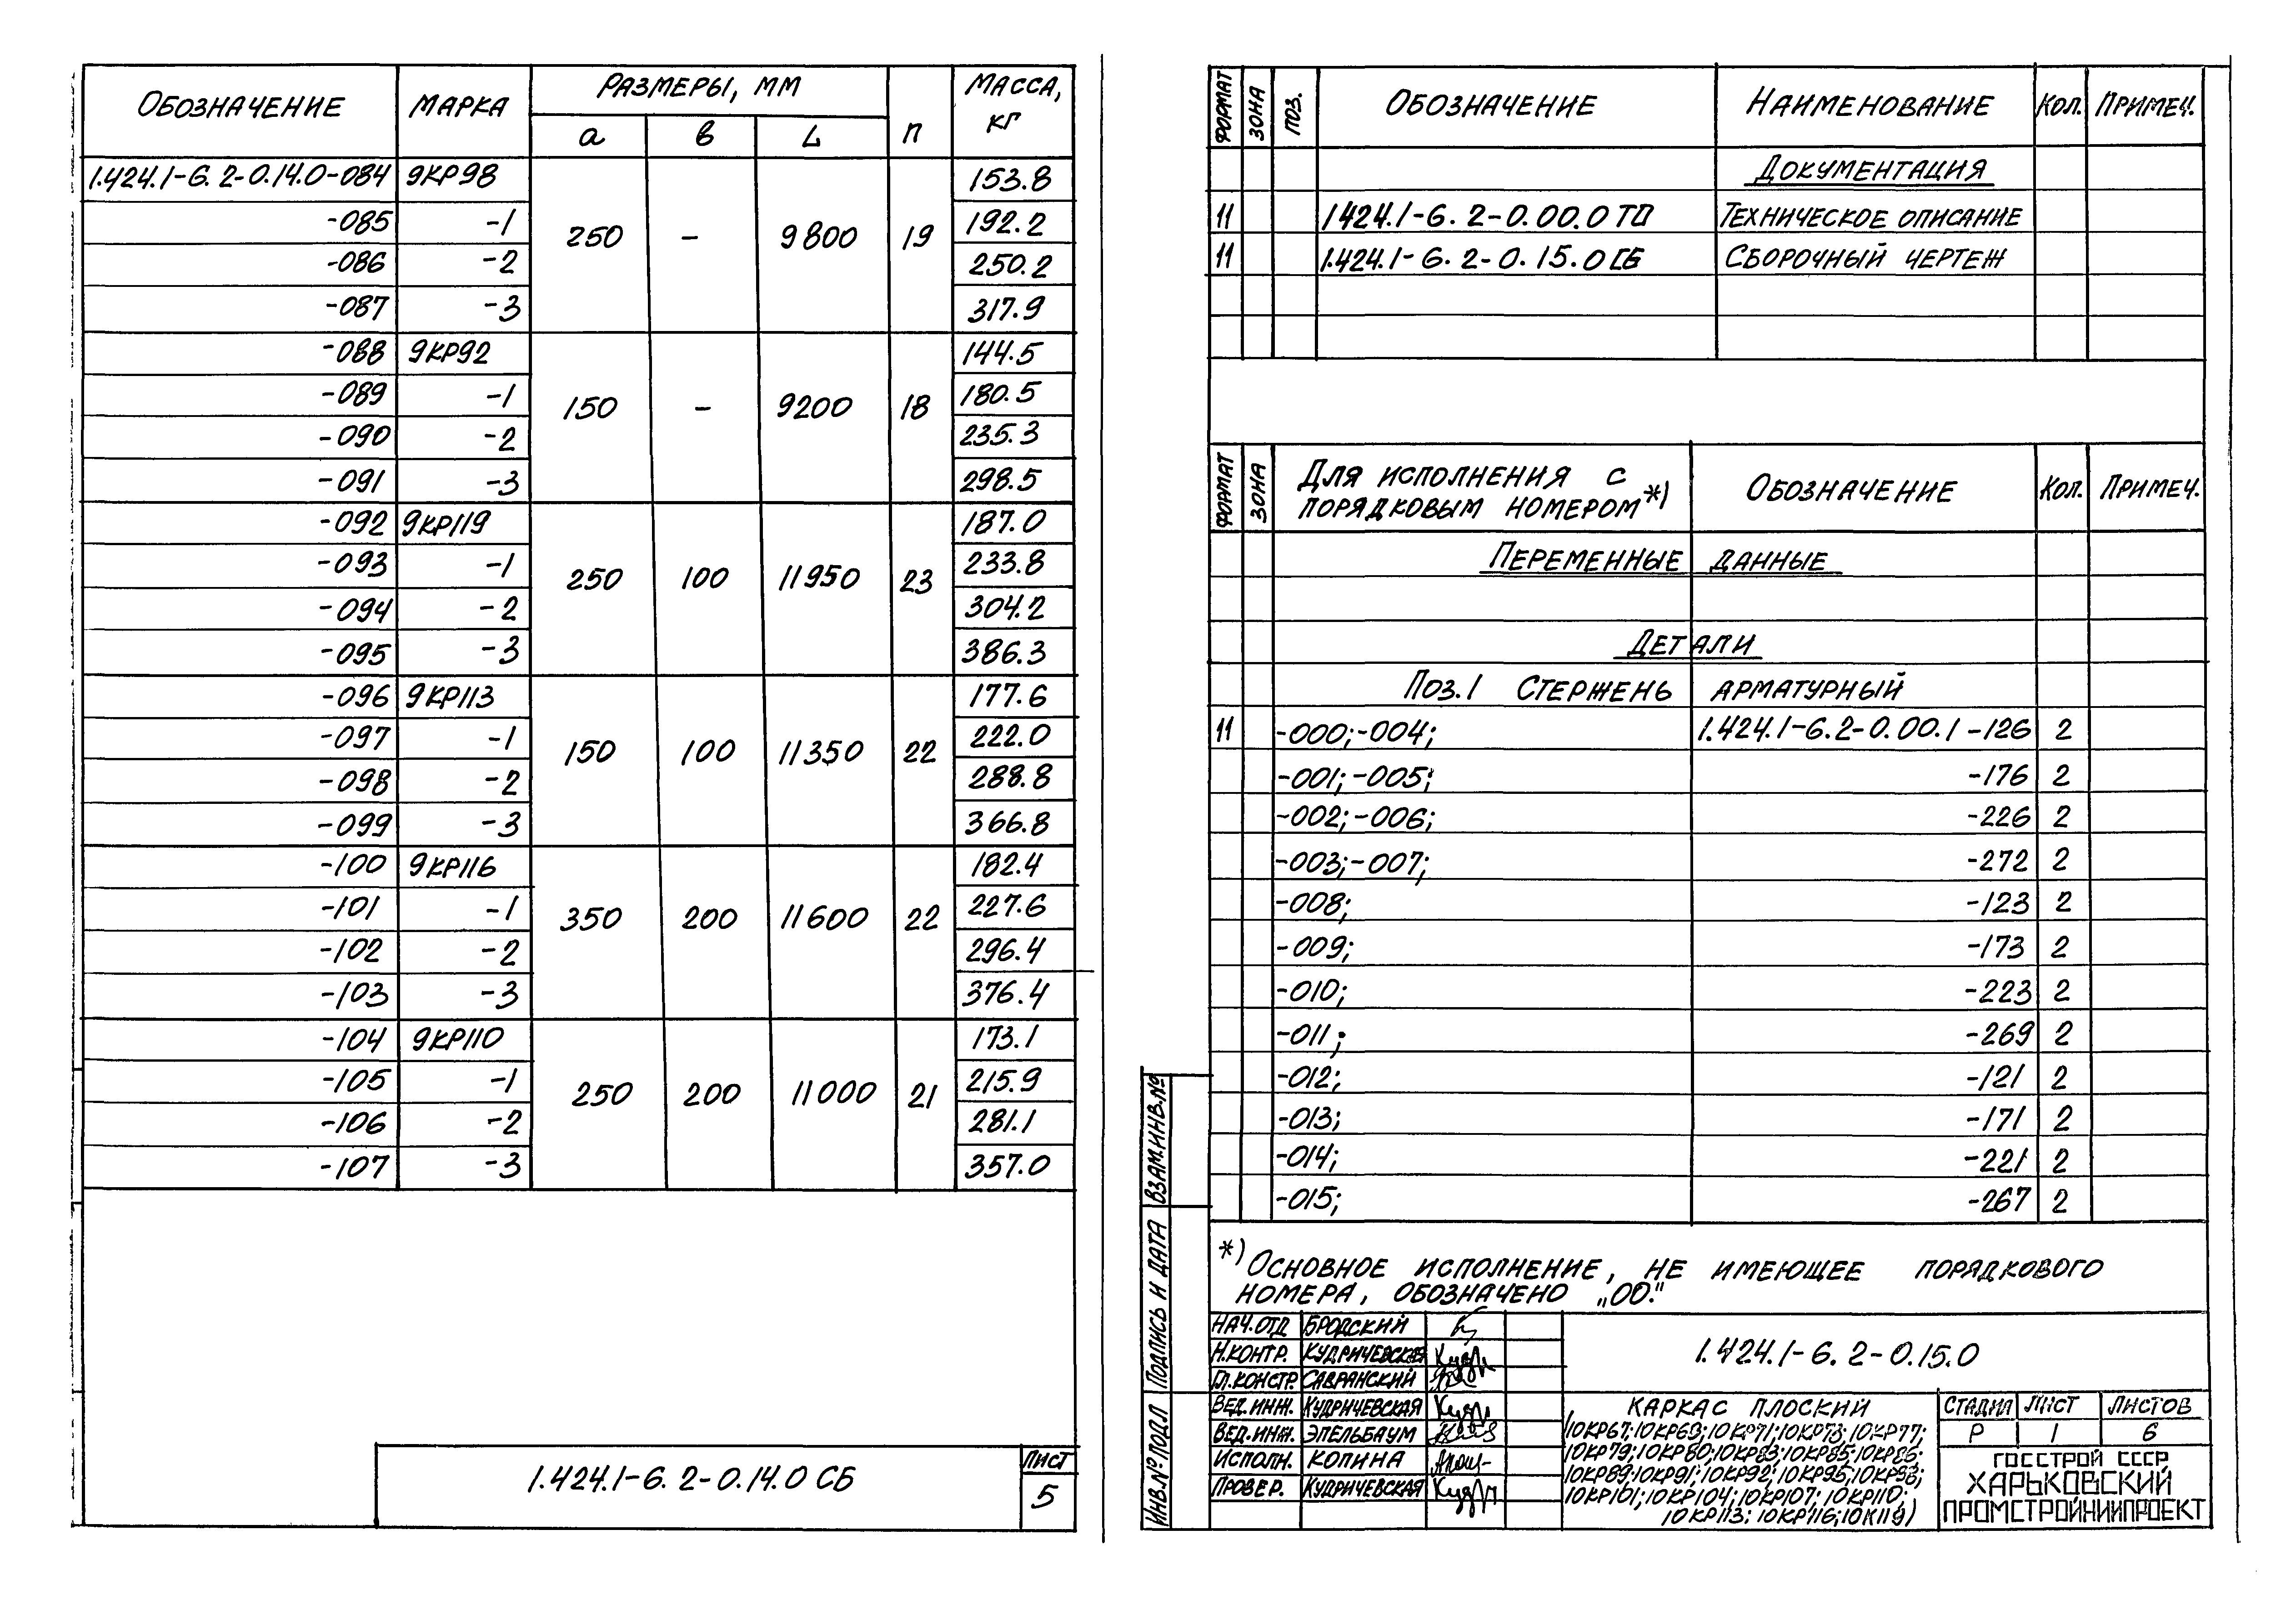 ОБОЗНАЧЕНИЕ МАРКА РАЗМЕРЫ, ММ n МАССА, КГ
а в L
1.424.1-6.2-0.14.0-084 9КР98 250 - 9800 19 153.8
-085 -1 192.2
-086 -2 250.2
-087 -3 317.9
-088 9КР92 150 - 9200 18 144.5
-089 -1 180.5
-090 -2 235.3
-091 -3 298.5
-092 9КР119 250 100 11950 23 187.0
-093 -1 233.8
-094 -2 304.2
-095 -3 386.3
-096 9КР113 150 100 11350 22 177.6
-097 -1 222.0
-098 -2 288.8
-099 -3 366.8
-100 9КР116 350 200 11600 22 182.4
-101 -1 227.6
-102 -2 296.4
-103 -3 376.4
-104 9КР110 250 200 11000 21 173.1
-105 -1 215.9
-106 -2 281.1
-107 -3 357.0
1.424.1-6.2-0.14.0 СБ ЛИСТ
5
ФОРМАТ ЗОНА ПОЗ. ОБОЗНАЧЕНИЕ НАИМЕНОВАНИЕ КОЛ. ПРИМЕЧ.
ДОКУМЕНТАЦИЯ
11 1.424.1-6.2-0.00.0 ТО ТЕХНИЧЕСКОЕ ОПИСАНИЕ
11 1.424.1-6.2-0.15.0 СБ СБОРОЧНЫЙ ЧЕРТЕЖ
ФОРМАТ ЗОНА ДЛЯ ИСПОЛНЕНИЯ С ПОРЯДКОВЫМ НОМЕРОМ*) ОБОЗНАЧЕНИЕ КОЛ. ПРИМЕЧ.
ПЕРЕМЕННЫЕ ДАННЫЕ
ДЕТАЛИ
ПОЗ.1 СТЕРЖЕНЬ АРМАТУРНЫЙ
11 -000;-004; 1.424.1-6.2-0.00.1-126 2
-001;-005; -176 2
-002;-006; -226 2
-003;-007; -272 2
-008; -123 2
-009; -173 2
-010; -223 2
-011; -269 2
-012; -121 2
-013; -171 2
-014; -221 2
-015; -267 2
*) ОСНОВНОЕ ИСПОЛНЕНИЕ, НЕ ИМЕЮЩЕЕ ПОРЯДКОВОГО
НОМЕРА, ОБОЗНАЧЕНО „00."
ИНВ.№ ПОДЛ ПОДПИСЬ И ДАТА ВЗАМ.ИНВ.№
НАЧ.ОТД БРОДСКИЙ
Н.КОНТР. КУДРИЧЕВСКАЯ
ГЛ.КОНСТР САВРАНСКИЙ
ВЕД.ИНЖ. КУДРИЧЕВСКАЯ
ВЕД.ИНЖ. ЭПЕЛЬБАУМ
ИСПОЛН. КОПИНА
ПРОВЕР. КУДРИЧЕВСКАЯ
1.424.1-6.2-0.15.0
КАРКАС ПЛОСКИЙ
(10КР67;10КР69;10КР71;10КР73;10КР77;
10КР79;10КР80;10КР83;10КР85;10КР86;
10КР89;10КР91;10КР92;10КР95;10КР98;
10КР101;10КР104;10КР107;10КР110;
10КР113;10КР116;10К119)
СТАДИЯ ЛИСТ ЛИСТОВ
Р 1 6
ГОССТРОЙ СССР
ХАРЬКОВСКИЙ
ПРОМСТРОЙНИИПРОЕКТ